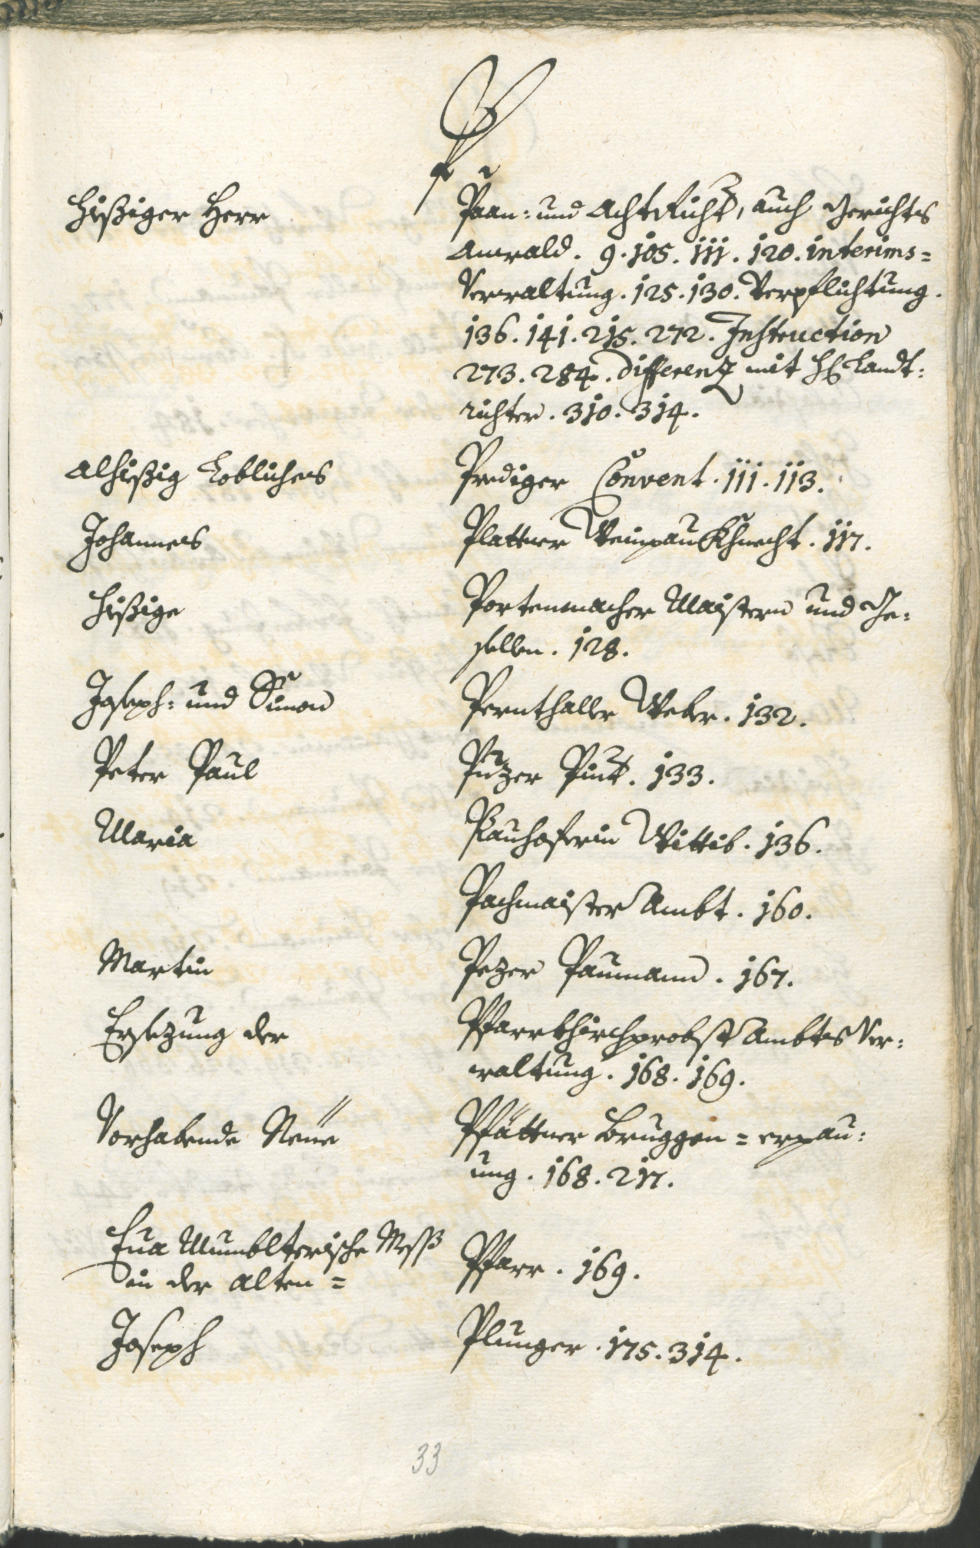 P
Hißiger Herr Paan: und AchtRicht, auch Gerichts
Anwald. 9. 105. 111. 120. interims=
Verwaltung. 125. 130. Verpflichtung.
136. 141. 215. 272. Instruction
273. 284. Differenz mit H: Landt:
richter. 310. 314.
alhißig Lobliches Prediger Convent. 111. 113.
Johannes Plattner Weinpau Khnecht. 117.
Hißige Portenmacher Maistern und Ge:
sellen. 128.
Joseph: und Simon Pernthaller Weber. 132.
Peter Paul Puzer Pint. 133.
Maria Pauhoferin Wittib. 136.
Pachmaister Ambt. 160.
Martin Pezer Paumann. 167.
Ersezung der Pfarrkhirchprobst Ambts Ver:
waltung. 168. 169.
Vorhabende Neüe Pfättner Bruggen = erpau:
ung. 168. 217.
Eua Mumblterische Mess
in der alten = Pfarr. 169.
Joseph Plunger. 175. 314.
33